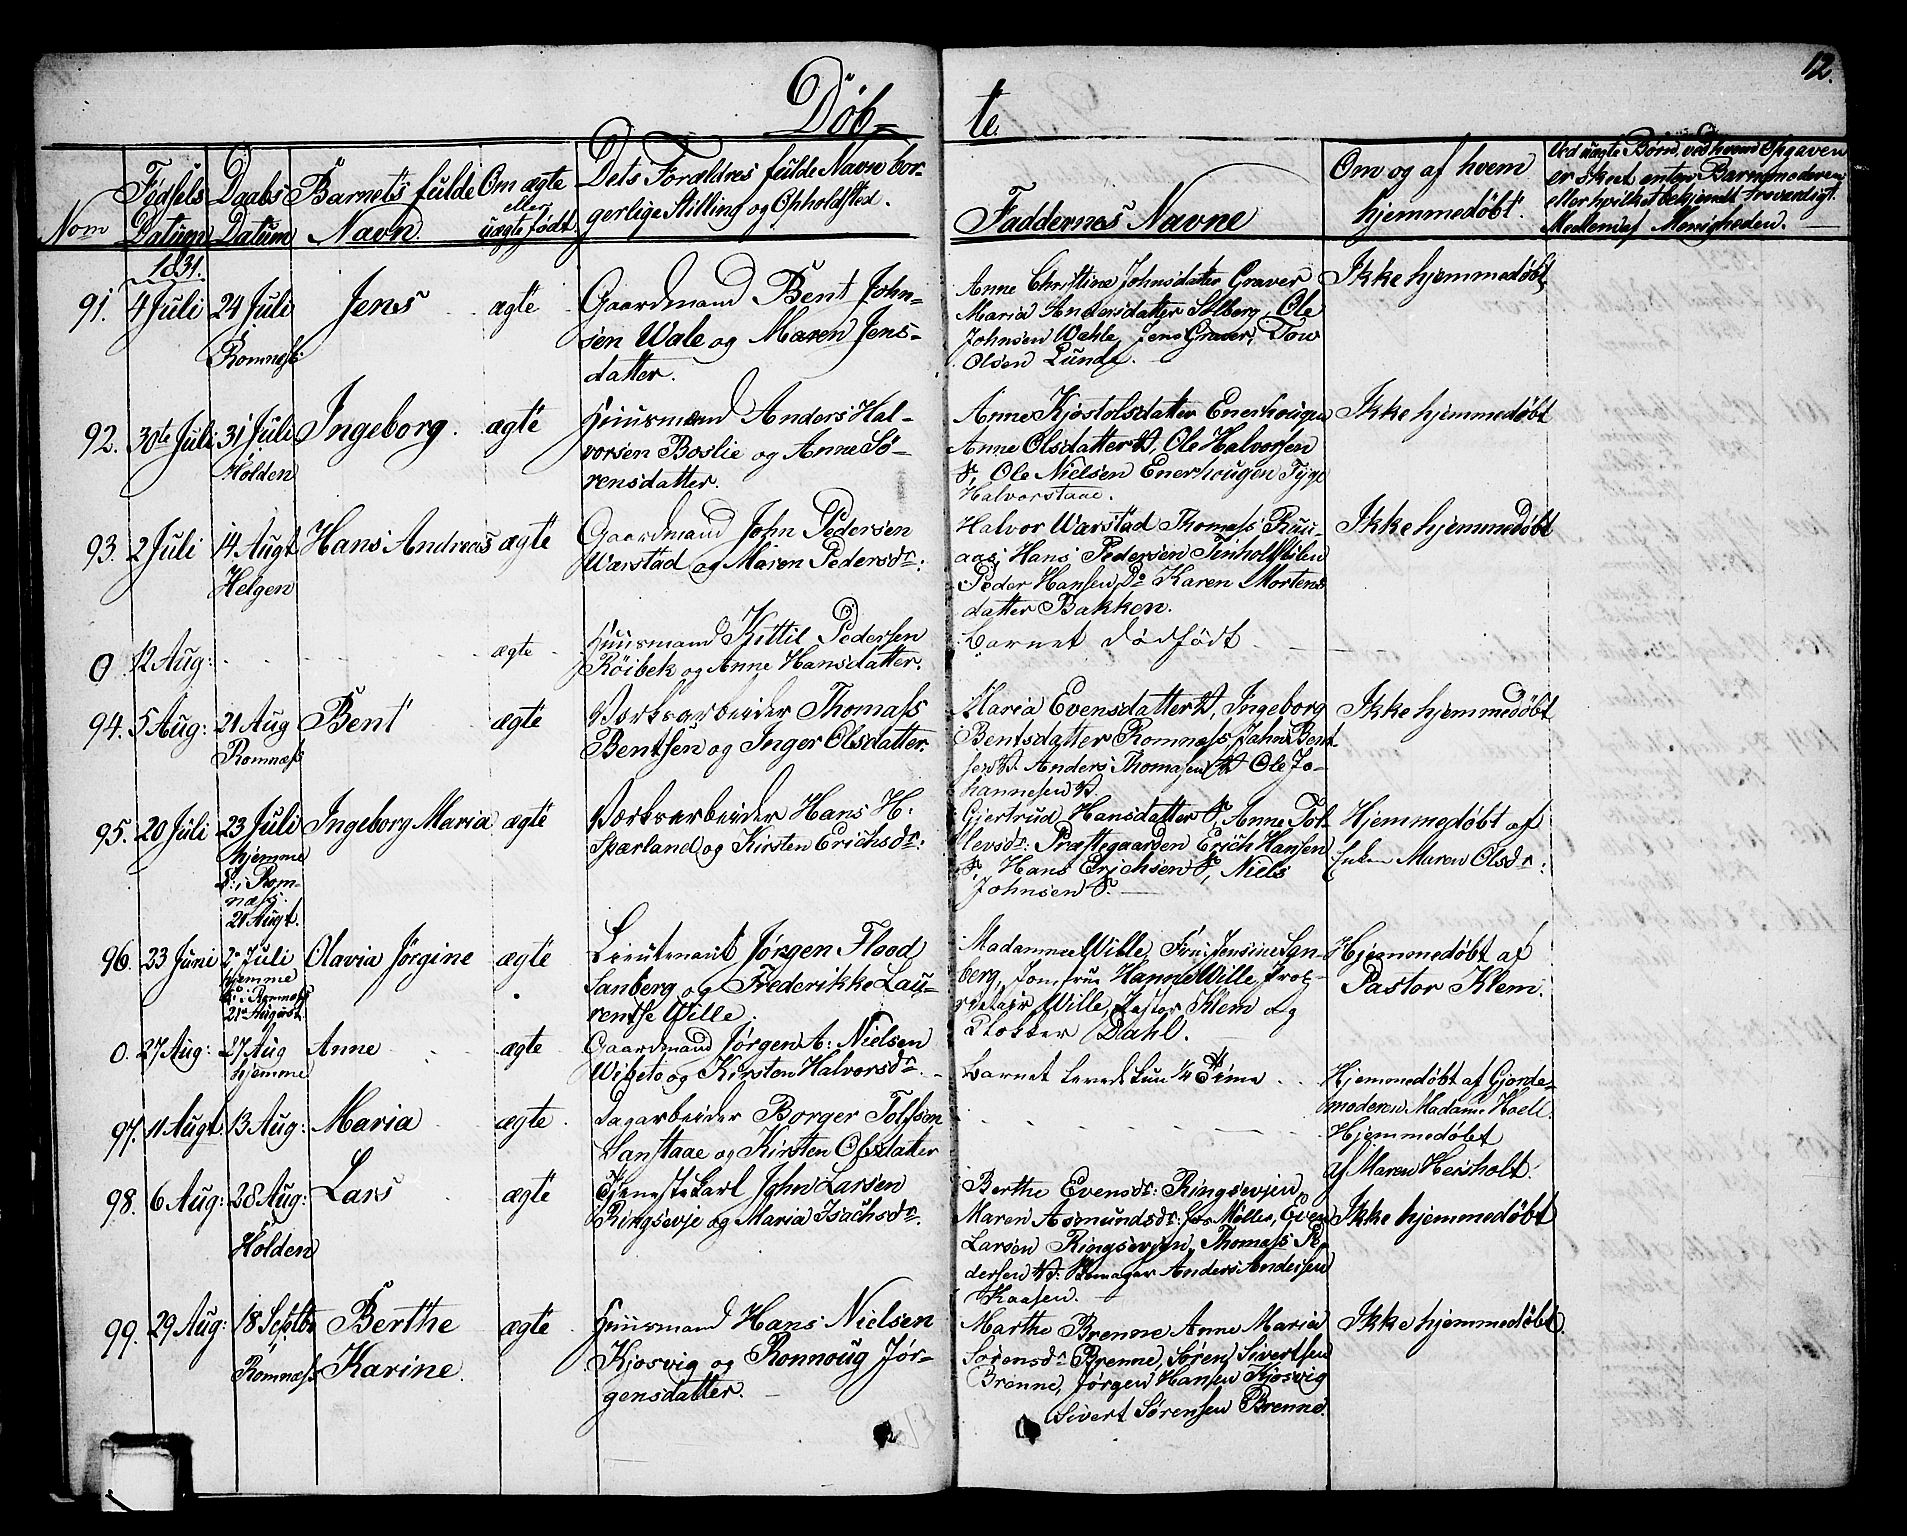 12.
Døb-
te.
Nom
Fødsels Datum
Daabs Datum
Barnets fulde Navn
Om ægte eller uægte født.
Dets Forældres fulde Navn bor-
gerlige Stilling og Opholdsted.
Faddernes Navne
Om og af hvem
hjemmedøbt.
Ved uægte Børn, ved hvem Opgaven
er skeet enten Barnemoderen
eller hvilket bekjendt troværdigt
Medlem af Menigheden.
1831.
91. 4 Juli 24 Juli Romnæss: Jens ægte
Gaardmand Bent John-
sen Wale og Maren Jens-
datter.
Anne Christine Johnsdatter Graver
Maria Andersdatter Solberg, Ole
Johnsen Wahle, Jens Graver, Tov
Olsen Lunde.
Ikke hjemmedøbt
92. 30te Juli 31 Juli Holden Ingeborg. ægte
Huusmand Anders Hal-
vorsen Boslie og Anne Sø-
rensdatter.
Anne Kjøstolsdatter Enerhougen
Anne Olsdatter, Ole Halvorsen
Ole Nielsen Enerhougen Tyge
Halvorstaae.
Ikke hjemmedøbt
93. 2 Juli 14 Augt Helgen Hans Andreas ægte
Gaardmand John Pedersen
Warstad og Maren Pedersdr:
Halvor Warstad Thomass Ruu-
aas, Hans Pedersen
Peder Hansen Do Karen Mortens
datter Bakken.
Ikke hjemmedøbt
0 12 Aug: ægte
Huusmand Kittil Pedersen
Röibek og Anne Hansdatter.
Barnet dödfödt
94. 5 Aug: 21 Aug Romnæss Bent ægte
Værksarbeider Thomass
Bentsen og Inger Olsdatter.
Maria Evensdatter, Ingeborg
Bentsdatter Romnæss, John Bent-
sen Anders Thomasen Ole Jo-
hannesen
Ikke hjemmedøbt
95. 20 Juli 23 Juli hjemme D: i Rom-
næss. 21 Augt. Ingeborg Maria ægte
Værksarbeider Hans H:
Spærland og Kirsten Erichsdr:
Gjertrud Hansdatter S, Anne Tol-
levsdr: Præstegaarden Erich Hansen
S, Hans Erichsen S, Niels
Johnsen S.
Hjemmedøbt af
Enken Maren Olsdr:
96. 23 Juni 2 Juli hjemme D: i Romnæss
21 August. Olavia Jørgine ægte
Lieutenant Jørgen Flood
Sanberg og Frederikke Lau-
rentse Wille.
Madamme Wille, Fru Jensine San-
berg, Jomfrue Hanne Wille, Prop-
rietair Wille, Pastor Klem og
Klokker Dahl.
Hjemmedøbt af
Pastor Klem.
0. 27 Aug: 27 Aug hjemme Anne ægte
Gaardmand Jørgen A: Nielsen
Wibeto og Kirsten Halvorsdr.
Barnet levede kun 1/4 Time
Hjemmedøbt af Gjorde-
moderen Madame Hoell.
97. 11 Augt 13 Aug: Maria ægte
Dagarbeider Borger Tolfsen
Vanstaae og Kirsten Olsdatter
Hjemmedøbt
af Maren Hersholt.
98. 6 Aug: 28 Aug: Holden Lars ægte
Tjenestekarl John Larsen
Ringsevje og Maria Isachsdr.
Berthe Evensdr: Ringsevjen
Maren Asmundsdr: hos Møller, Even
Larsen Ringsevjen, Thomass Pe-
dersen Skomager Anders Andersen
Kaasen.
Ikke hjemmedøbt
99. 29 Aug: 18 Septbr Romnæss Berthe
Karine ægte
Huusmand Hans Nielsen
Kjosvig og Ronnoug Jør-
gensdatter.
Marthe Brenne Anne Maria
Sørensdr Brenne, Søren Sivertsen
Brenne, Jørgen Hansen Kjosvig
Sivert Sørensen Brenne.
Ikke hjemmedøbt